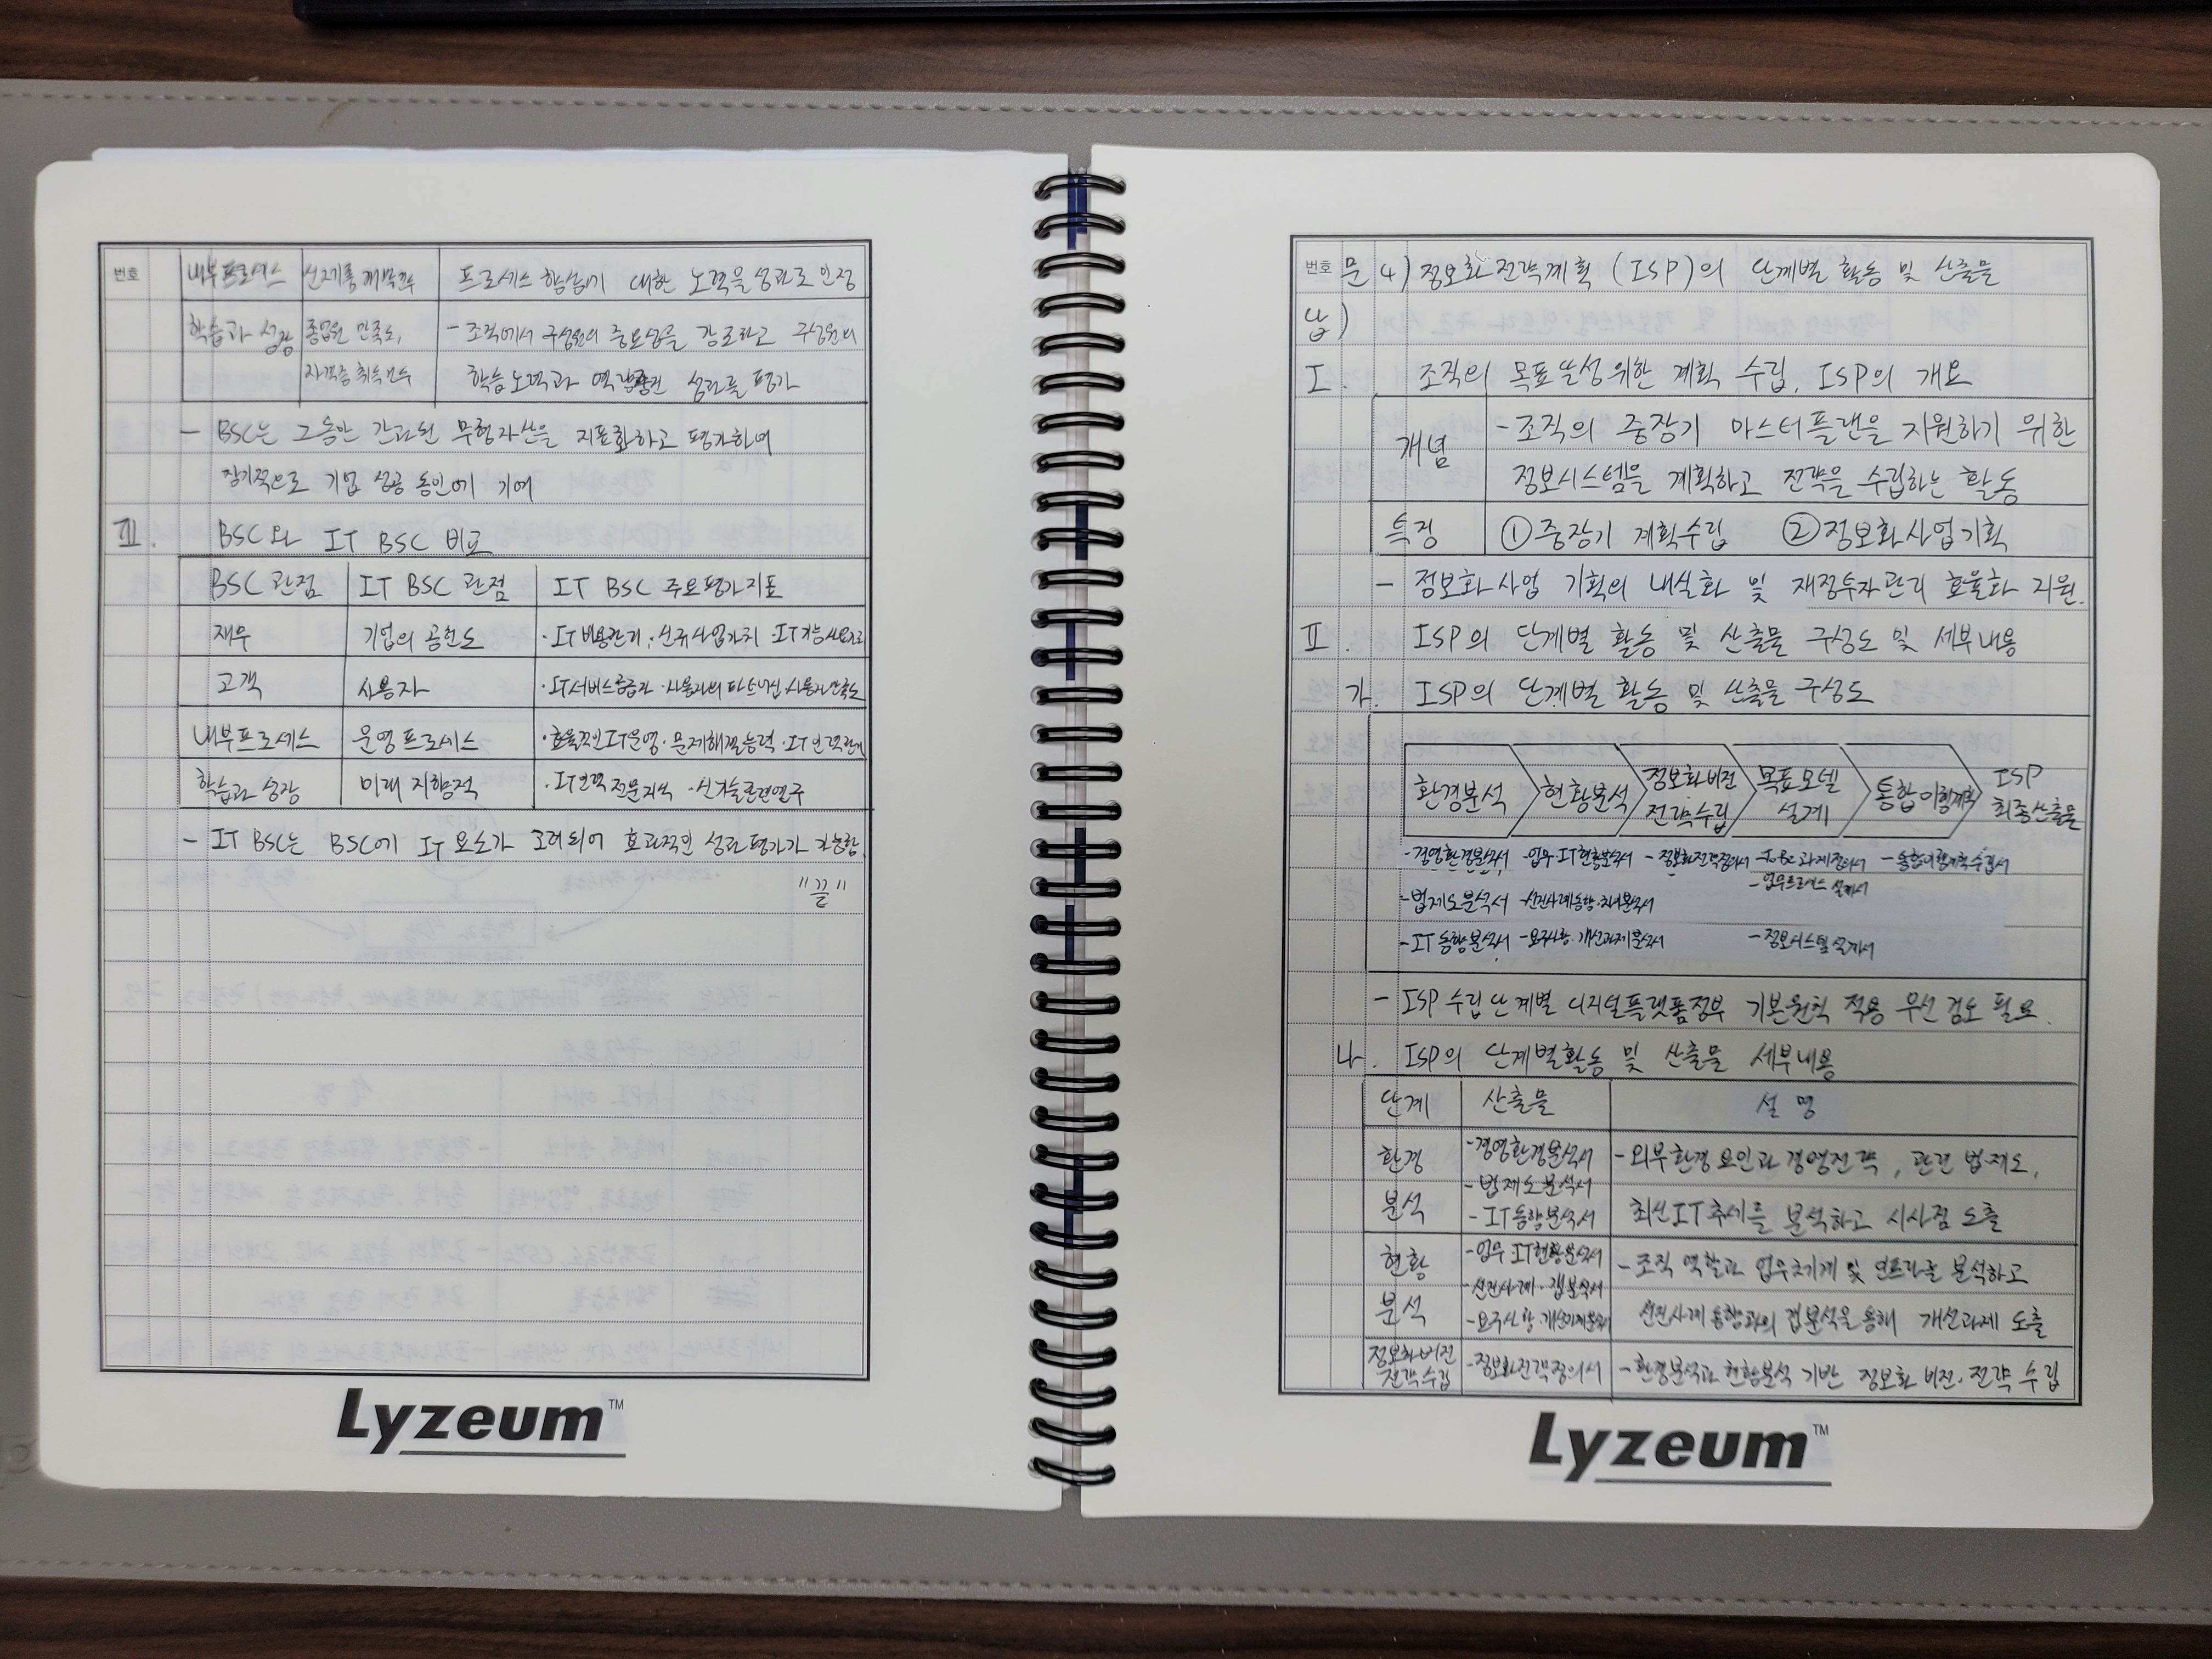 번호
내부프로세스 신제품 개발건수 프로세스 향상에 대한 노력을 성과로 인정
학습과 성장 종업원 만족도, - 조직에서 구성원의 중요성을 강조하고 구성원의
자격증 취득건수 학습노력과 역량 성과를 평가
- BSC는 그동안 간과된 무형자산을 지표화하고 평가하여
장기적으로 기업 성공 동인에 기여
Ⅲ. BSC와 IT BSC 비교
BSC 관점 IT BSC 관점 IT BSC 주요평가지표
재무 기업의 공헌도 ·IT비용관리 ·신규사업가치
고객 사용자 ·IT서비스공급자 ·사용자와 파트너십 ·사용자만족도
내부프로세스 운영프로세스 ·효율적인IT운영 ·문제해결능력 ·IT인력관리
학습과 성장 미래 지향적 ·IT인력 전문지식 ·신기술관련연구
- IT BSC는 BSC에 IT 요소가 고려되어 효과적인 성과평가가 가능함.
"끝"
Lyzeum™
번호 문 4) 정보화전략계획 (ISP)의 단계별 활동 및 산출물
답)
Ⅰ. 조직의 목표달성위한 계획 수립, ISP의 개요
개념 - 조직의 중장기 마스터플랜을 지원하기 위한
정보시스템을 계획하고 전략을 수립하는 활동
특징 ①중장기 계획수립 ②정보화사업기획
- 정보화사업 기획의 내실화 및 재정투자관리 효율화 지원.
Ⅱ. ISP의 단계별 활동 및 산출물 구성도 및 세부내용
가. ISP의 단계별 활동 및 산출물 구성도
환경분석 현황분석 정보화비전 전략수립 목표모델 설계 통합이행계획 ISP 최종산출물
-경영환경분석서 -업무·IT현황분석서 -정보화전략정의서 -To-Be과제정의서 -통합이행계획수립서
-업무프로세스 설계서
-법제도분석서 -선진사례동향·차이분석서
-IT동향분석서 -요구사항·개선과제분석서 -정보시스템설계서
- ISP 수립단계별 디지털플랫폼정부 기본원칙 적용 우선 검토 필요.
나. ISP의 단계별활동 및 산출물 세부내용
단계 산출물 설명
환경 -경영환경분석서 -외부환경요인과 경영전략, 관련 법·제도,
-법제도분석서
분석 -IT동향분석서 최신IT추세를 분석하고 시사점 도출
현황 -업무·IT현황분석서 -조직 역할과 업무체계 및 인프라를 분석하고
-선진사례·갭분석서
분석 -요구사항·개선과제분석서 선진사례 동향과의 갭분석을 통해 개선과제 도출
정보화비전
전략수립 -정보화전략정의서 -환경분석과 현황분석 기반 정보화 비전·전략 수립
Lyzeum™